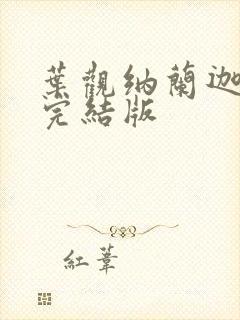 葉觀納蘭迦
完結版
紅葦